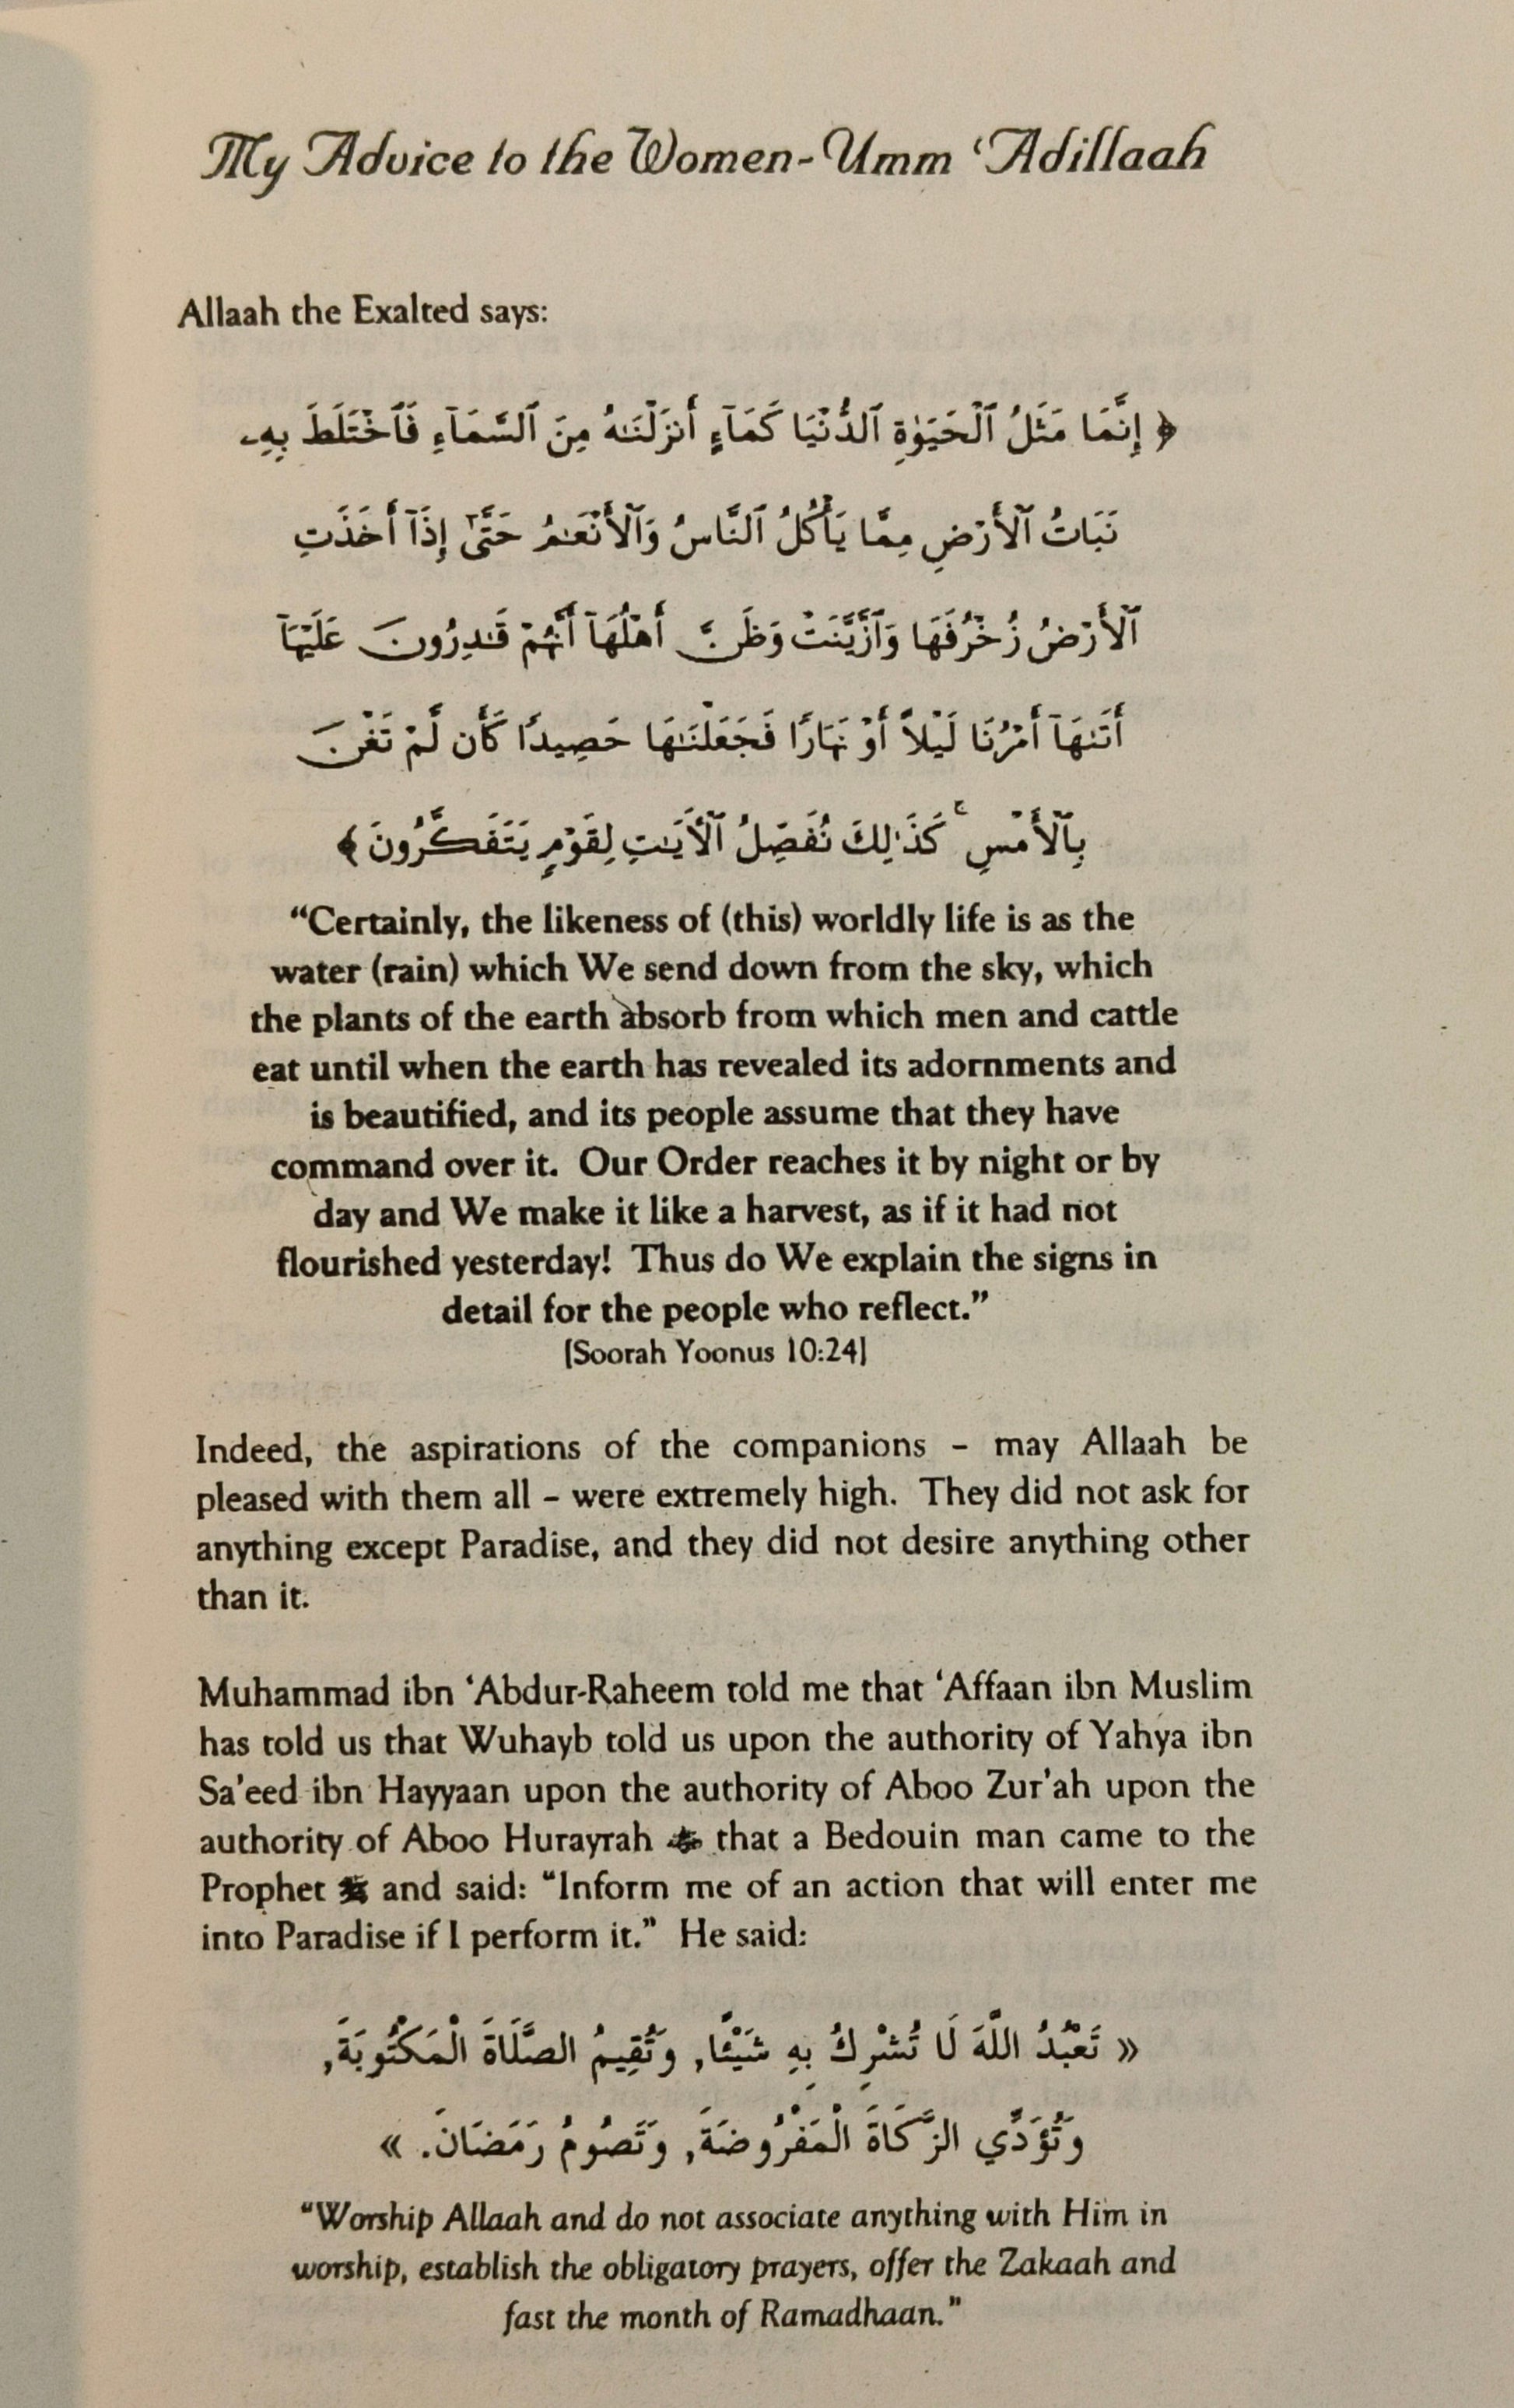 My Advice to the Women- Umm ‘Adillaah
Allaah the Exalted says:
﴿ إِنَّمَا مَثَلُ ٱلْحَيَوٰةِ ٱلدُّنْيَا كَمَآءٍ أَنزَلْنَـٰهُ مِنَ ٱلسَّمَآءِ فَٱخْتَلَطَ بِهِۦ
نَبَاتُ ٱلْأَرْضِ مِمَّا يَأْكُلُ ٱلنَّاسُ وَٱلْأَنْعَـٰمُ حَتَّىٰٓ إِذَآ أَخَذَتِ
ٱلْأَرْضُ زُخْرُفَهَا وَٱزَّيَّنَتْ وَظَنَّ أَهْلُهَآ أَنَّهُمْ قَـٰدِرُونَ عَلَيْهَآ
أَتَىٰهَآ أَمْرُنَا لَيْلًا أَوْ نَهَارًا فَجَعَلْنَـٰهَا حَصِيدًا كَأَن لَّمْ تَغْنَ
بِٱلْأَمْسِ ۚ كَذَٰلِكَ نُفَصِّلُ ٱلْأَيَـٰتِ لِقَوْمٍ يَتَفَكَّرُونَ ﴾
“Certainly, the likeness of (this) worldly life is as the
water (rain) which We send down from the sky, which
the plants of the earth absorb from which men and cattle
eat until when the earth has revealed its adornments and
is beautified, and its people assume that they have
command over it. Our Order reaches it by night or by
day and We make it like a harvest, as if it had not
flourished yesterday! Thus do We explain the signs in
detail for the people who reflect.”
[Soorah Yoonus 10:24]
Indeed, the aspirations of the companions – may Allaah be
pleased with them all – were extremely high. They did not ask for
anything except Paradise, and they did not desire anything other
than it.
Muhammad ibn ‘Abdur-Raheem told me that ‘Affaan ibn Muslim
has told us that Wuhayb told us upon the authority of Yahya ibn
Sa’eed ibn Hayyaan upon the authority of Aboo Zur’ah upon the
authority of Aboo Hurayrah that a Bedouin man came to the
Prophet ﷺ and said: “Inform me of an action that will enter me
into Paradise if I perform it.” He said:
« تَعْبُدُ اللَّهَ لَا تُشْرِكُ بِهِ شَيْئًا, وَتُقِيمُ الصَّلَاةَ الْمَكْتُوبَةَ,
وَتُؤَدِّي الزَّكَاةَ الْمَفْرُوضَةَ, وَتَصُومُ رَمَضَانَ. »
“Worship Allaah and do not associate anything with Him in
worship, establish the obligatory prayers, offer the Zakaah and
fast the month of Ramadhaan.”